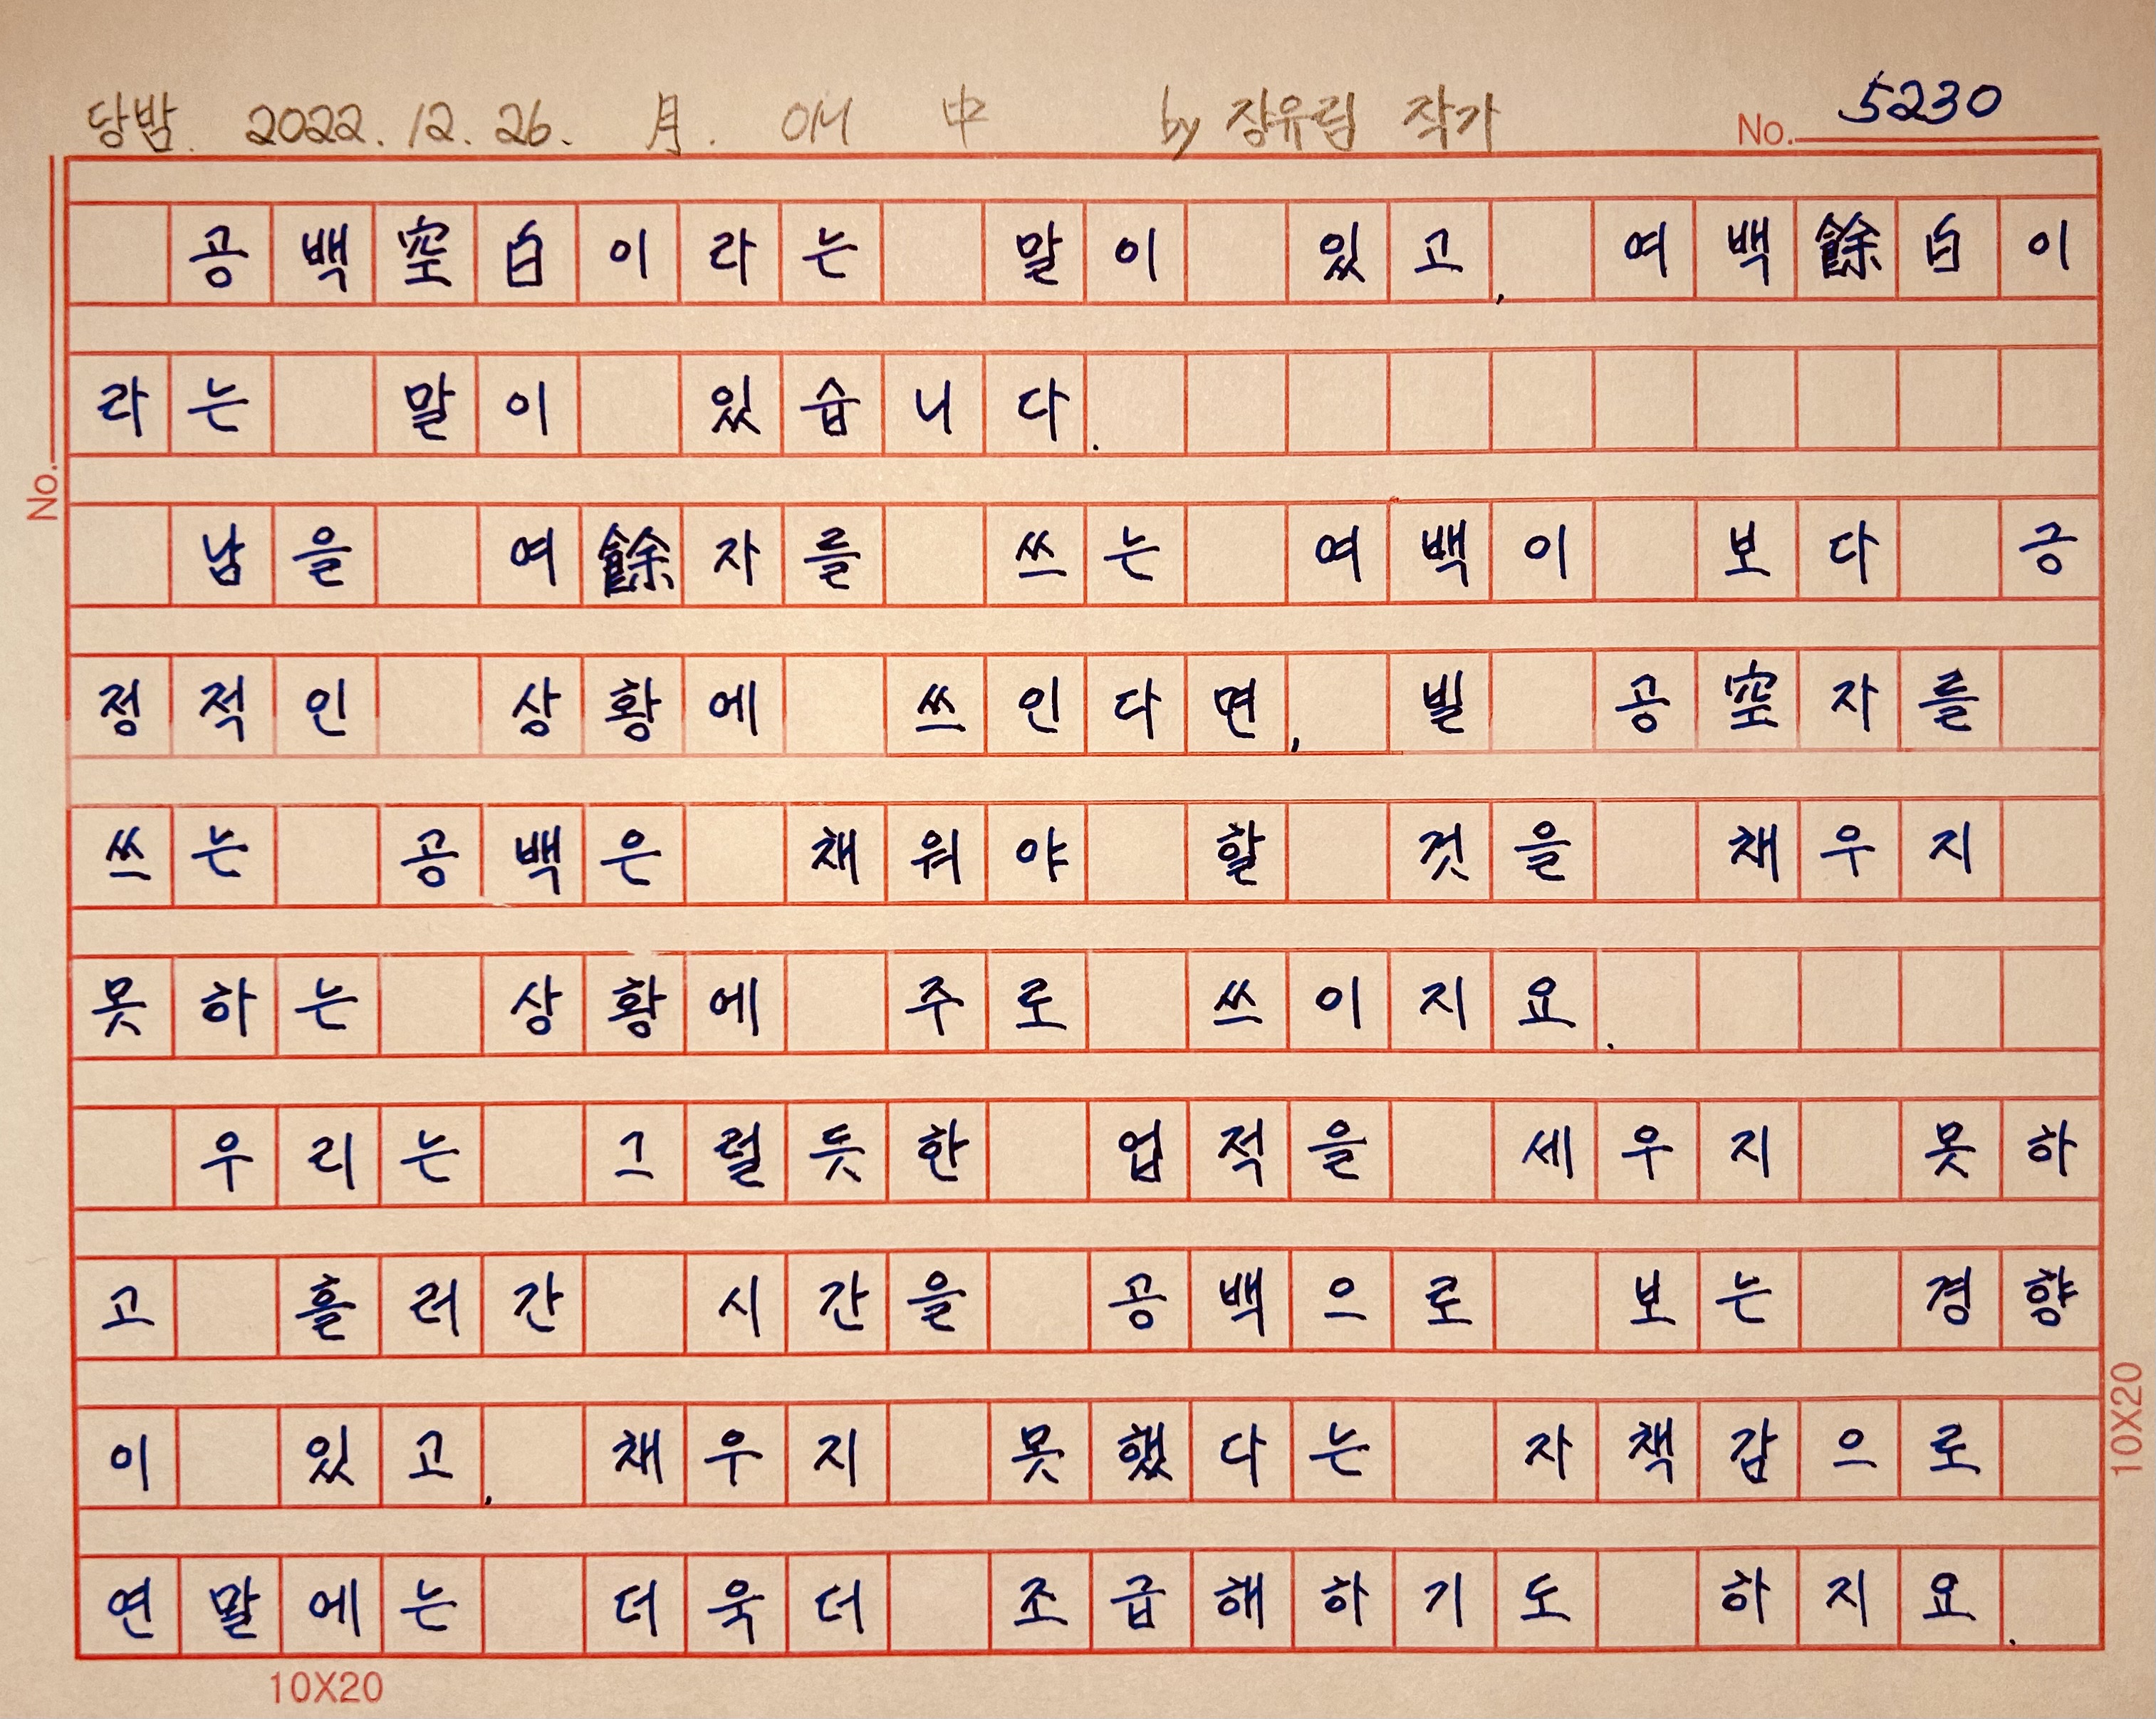 당밤. 2022. 12. 26. 月. 에 中 by 장유림 작가 No. 5230
공백空白이라는 말이 있고, 여백餘白이
라는 말이 있습니다.
No.
남을 여餘자를 쓰는 여백이 보다 긍
정적인 상황에 쓰인다면, 빌 공空자를
쓰는 공백은 채워야 할 것을 채우지
못하는 상황에 주로 쓰이지요.
우리는 그럴듯한 업적을 세우지 못하
고 흘러간 시간을 공백으로 보는 경향
이 있고, 채우지 못했다는 자책감으로
10X20
연말에는 더욱더 조급해하기도 하지요.
10X20